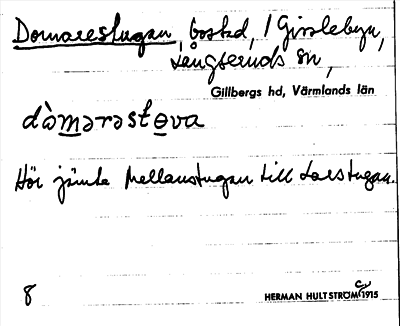 Domarestugan, bostd, i Gisslebyn,
Långseruds sn,
Gillbergs hd, Värmlands län
dòmərəsteva
Hör jämte Mellanstugan till Larstugan.
8
HERMAN HULTSTRÖM 1915